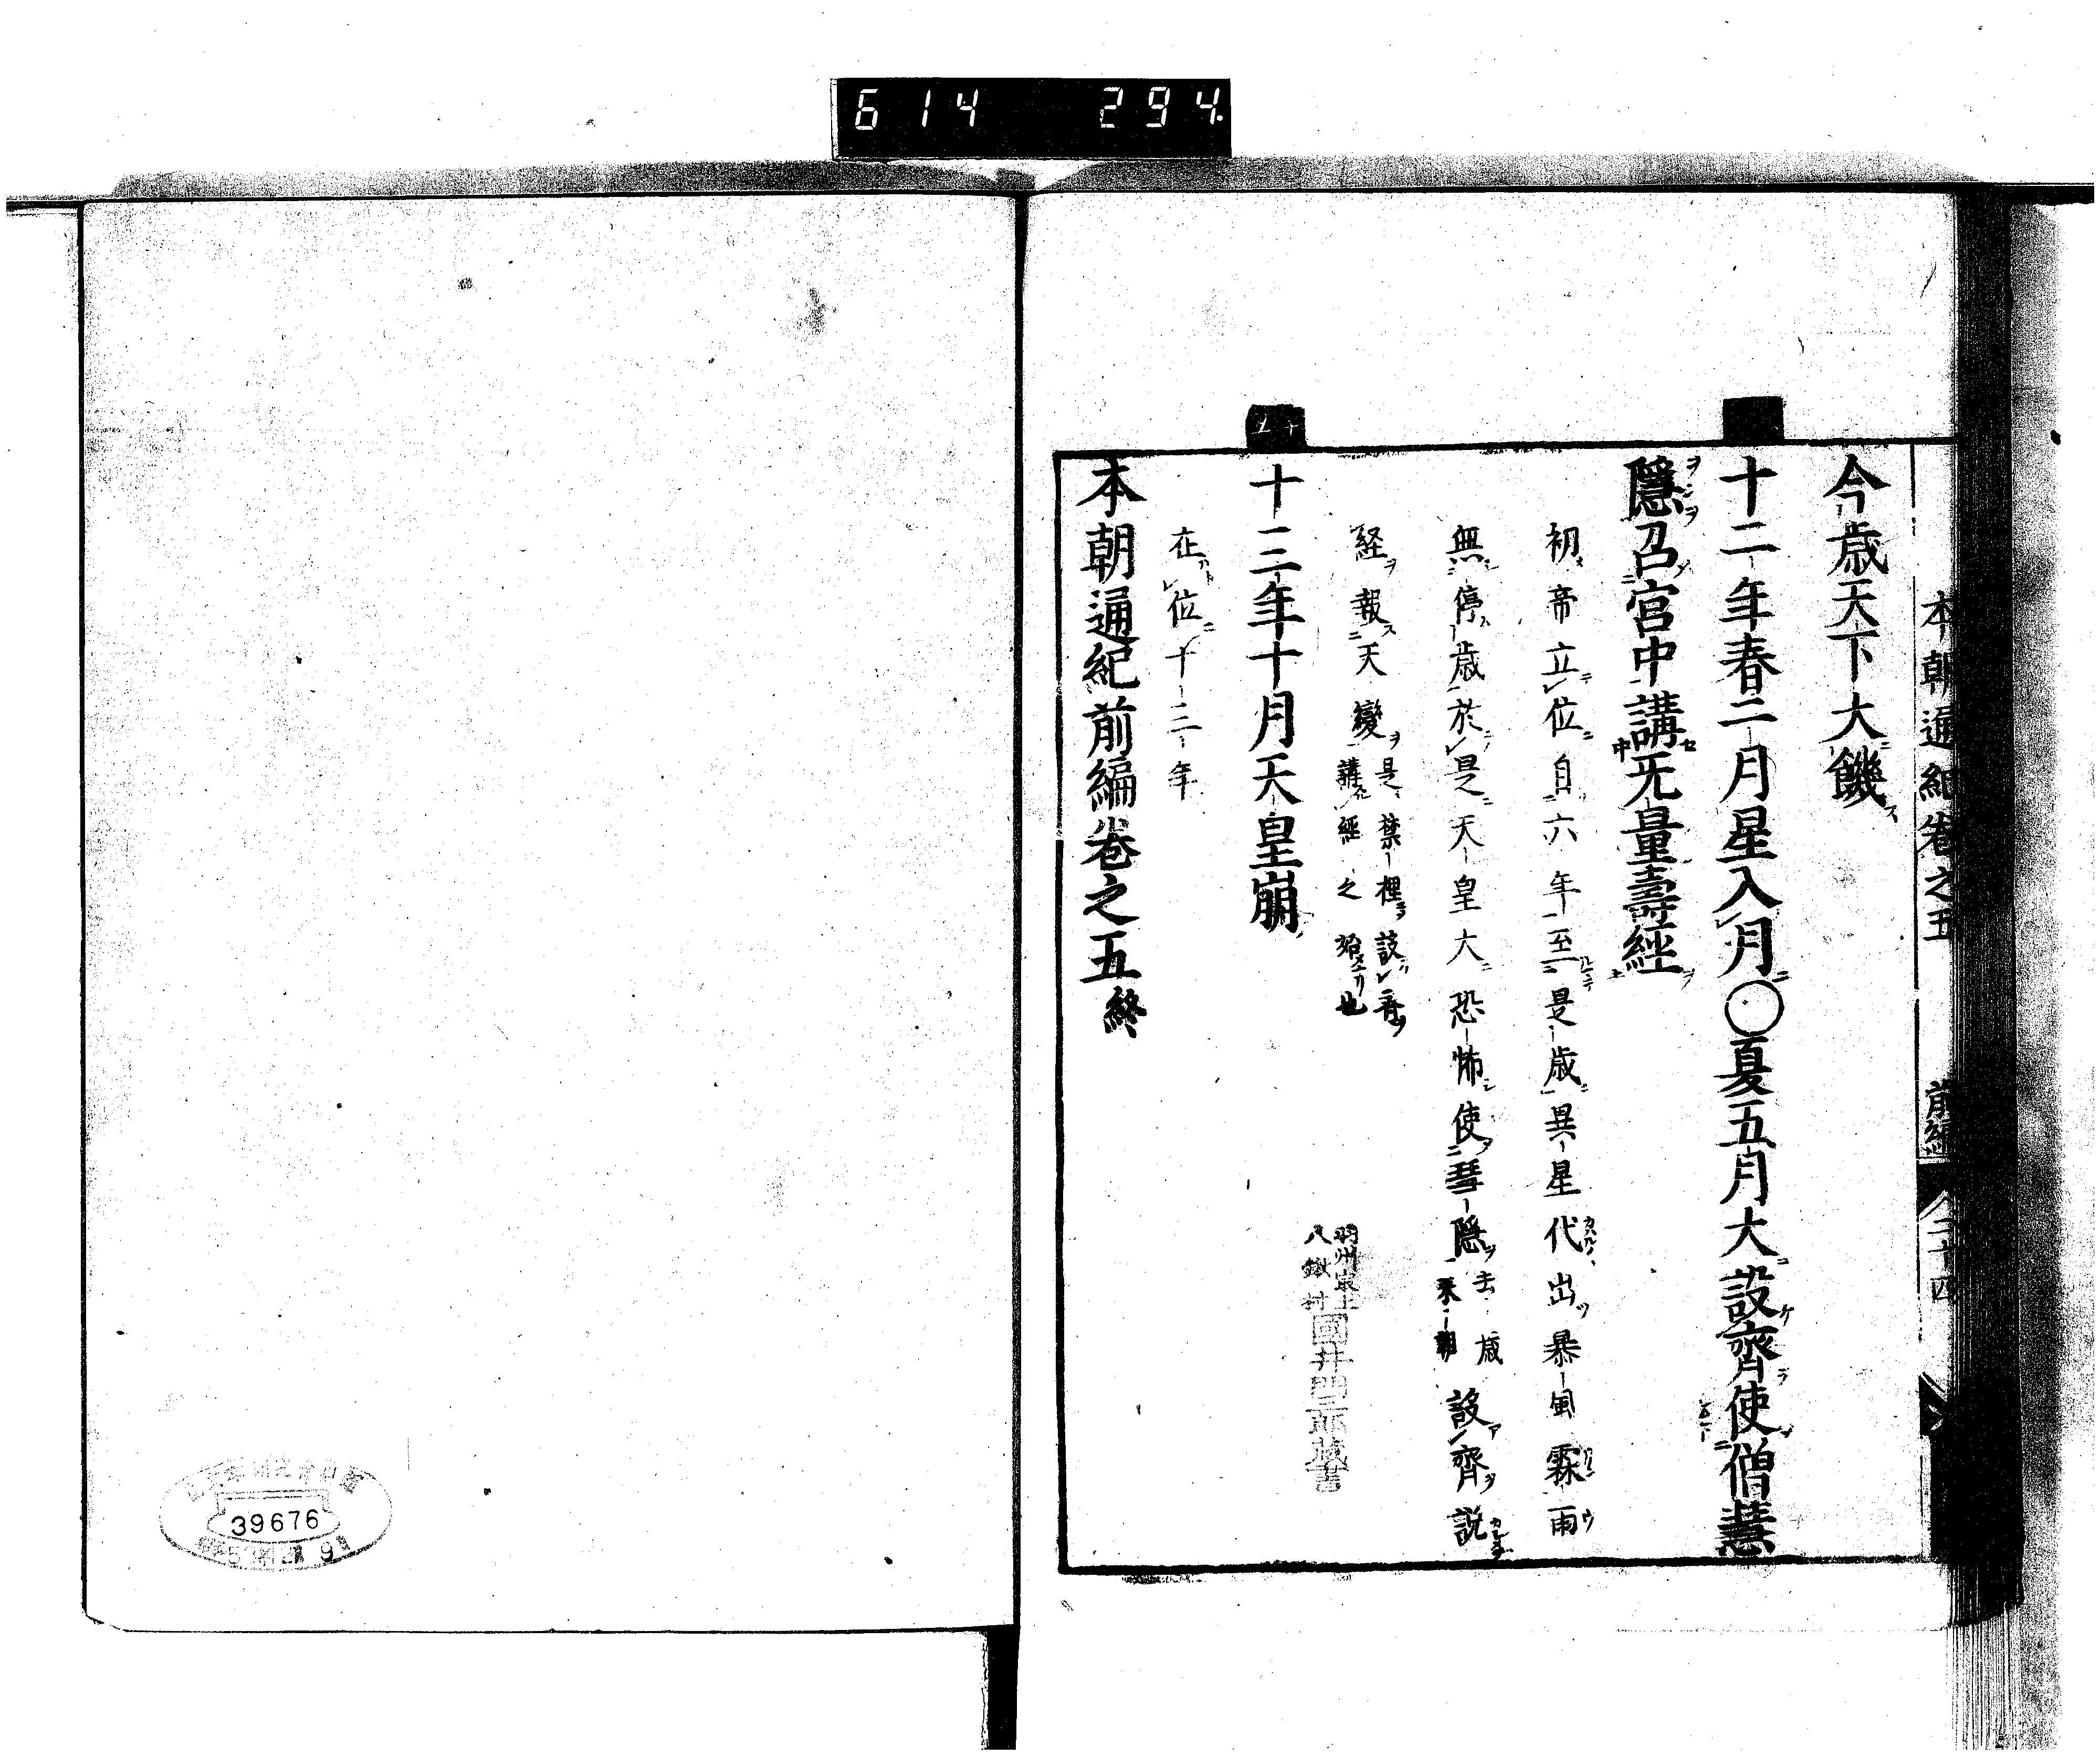 614 294
本朝通紀卷之五 前編 二十四
今歳天下大饑
十二年春二月星入月○夏五月大設齊使僧慧
隱召宮中講旡量壽經
初帝立位自六年至是歳異星代出暴風霖雨
無停歳於是天皇大恐怖使彗隱去歳来朝設齊説
経報天變是葉裡談音講經之始也
十三年十月天皇崩
在位十三年
本朝通紀前編卷之五終
羽州最上
八鍬村
國井門三郎藏書
39676